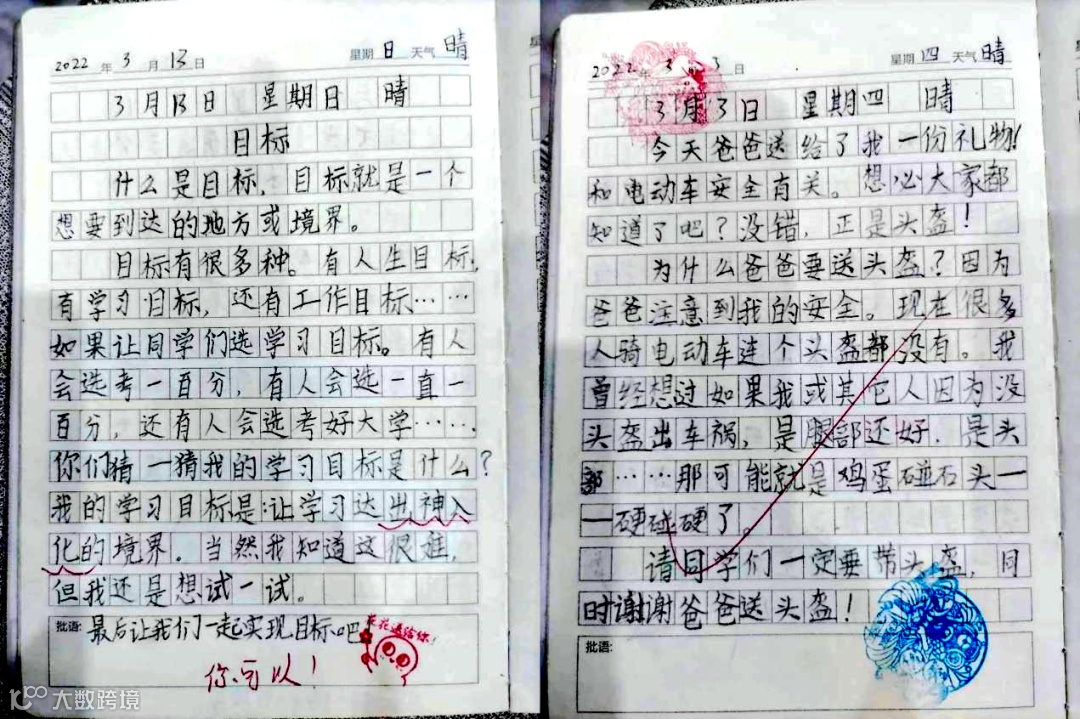 2022 年 3 月 13 日 星期 日 天气 晴
3月13日 星期日 晴
目标
什么是目标，目标就是一个
想要到达的地方或境界。
目标有很多种。有人生目标，
有学习目标，还有工作目标……
如果让同学们选学习目标。有人
会选考一百分，有人会选一直一
百分，还有人会选考好大学……
你们猜一猜我的学习目标是什么？
我的学习目标是：让学习达出神入
化的境界。当然我知道这很难，
但我还是想试一试。
批语: 最后让我们一起实现目标吧
花花送给你！
你可以！
大数跨境
2022 年 3 月 3 日 星期 四 天气 晴
3月3日 星期四 晴
今天爸爸送给了我一份礼物！
和电动车安全有关。想必大家都
知道了吧？没错，正是头盔！
为什么爸爸要送头盔？因为
爸爸注意到我的安全。现在很多
人骑电动车连个头盔都没有。我
曾经想过如果我或其它人因为没
头盔出车祸，是腿部还好．是头
部……那可能就是鸡蛋碰石头一
一硬碰硬了。
请同学们一定要带头盔，同
时谢谢爸爸送头盔！
批语: